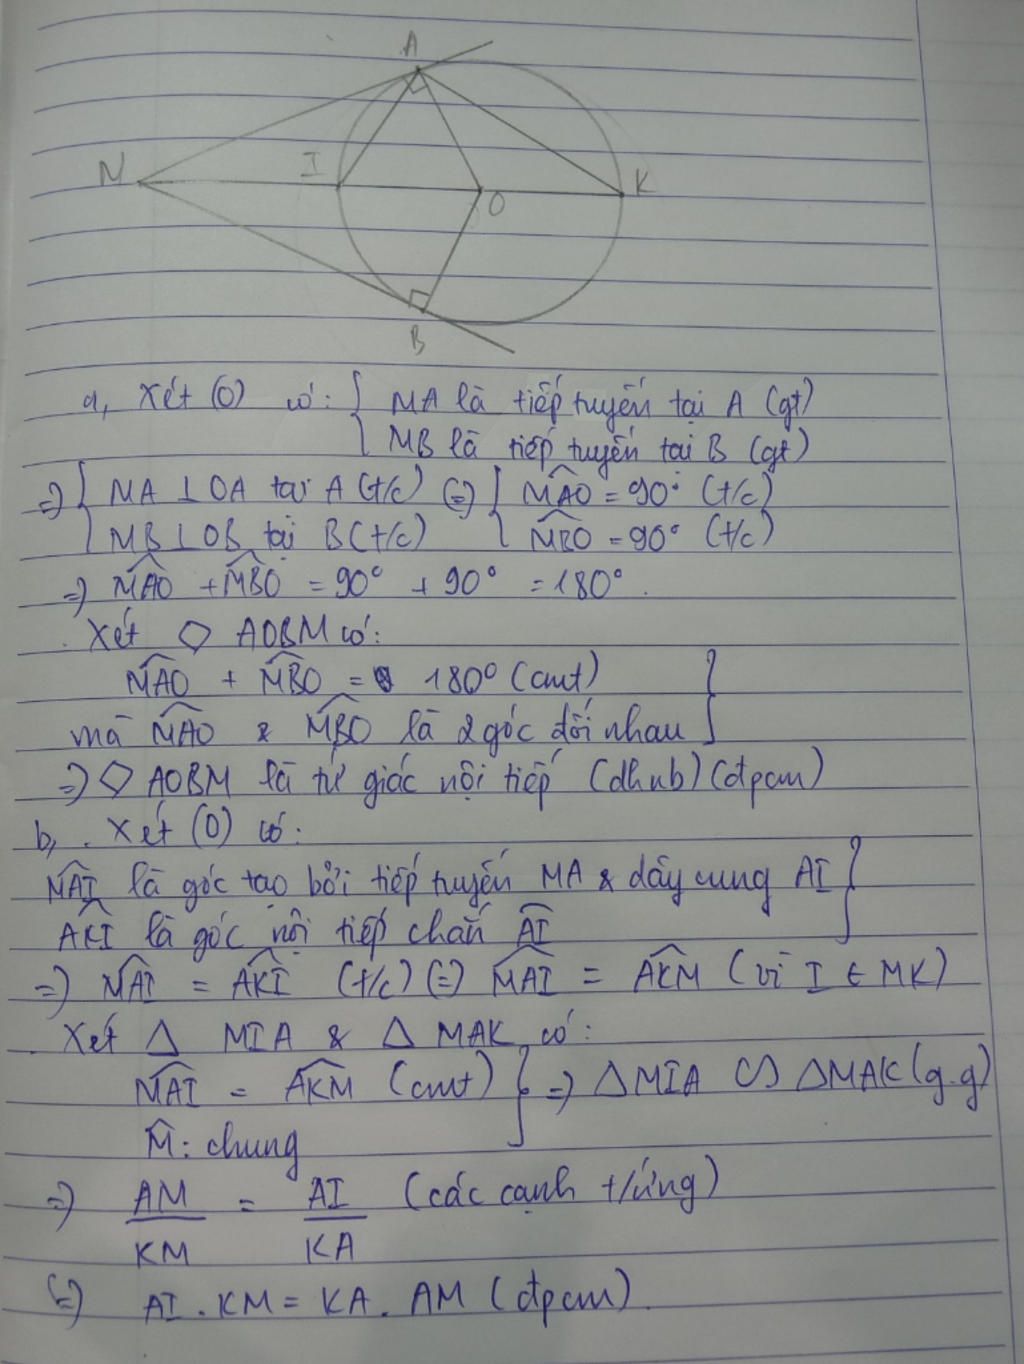 A
M
I
O
K
B
a, Xét (O) có: { MA là tiếp tuyến tại A (gt)
{ MB là tiếp tuyến tại B (gt)
=> { MA ⊥ OA tại A (t/c) (=) { M̂AO = 90° (t/c)
{ MB ⊥ OB tại B (t/c) { M̂BO = 90° (t/c)
=> M̂AO + M̂BO = 90° + 90° = 180°.
. Xét ◇ AOBM có:
M̂AO + M̂BO = 180° (cmt) }
mà M̂AO & M̂BO là 2 góc đối nhau }
=> ◇ AOBM là tứ giác nội tiếp (dhnb) (đpcm)
b, . Xét (O) có:
M̂AI là góc tạo bởi tiếp tuyến MA & dây cung AI }
ÂKI là góc nội tiếp chắn A͡I }
=> M̂AI = ÂKI (t/c) (=) M̂AI = ÂKM (vì I ∈ MK)
. Xét Δ MIA & Δ MAK có:
M̂AI = ÂKM (cmt) } => ΔMIA ∽ ΔMAK (g.g)
M̂: chung }
=> AM/KM = AI/KA (các cạnh t/ứng)
(=) AI . KM = KA . AM (đpcm).